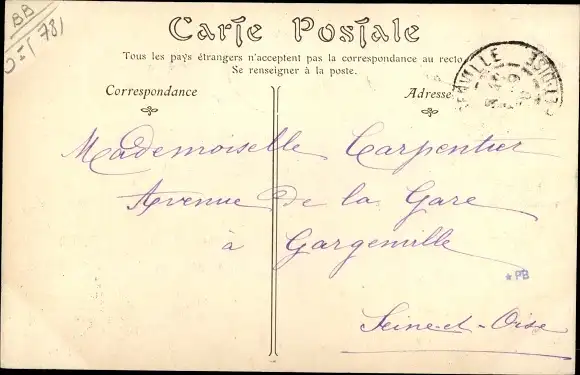 BB
Carte Postale
Tous les pays étrangers n'acceptent pas la correspondance au recto
Se renseigner à la poste.
Correspondance
Adresse
Mademoiselle Carpentier
Avenue de la Gare
à Gargenville
* PB
Seine-et-Oise